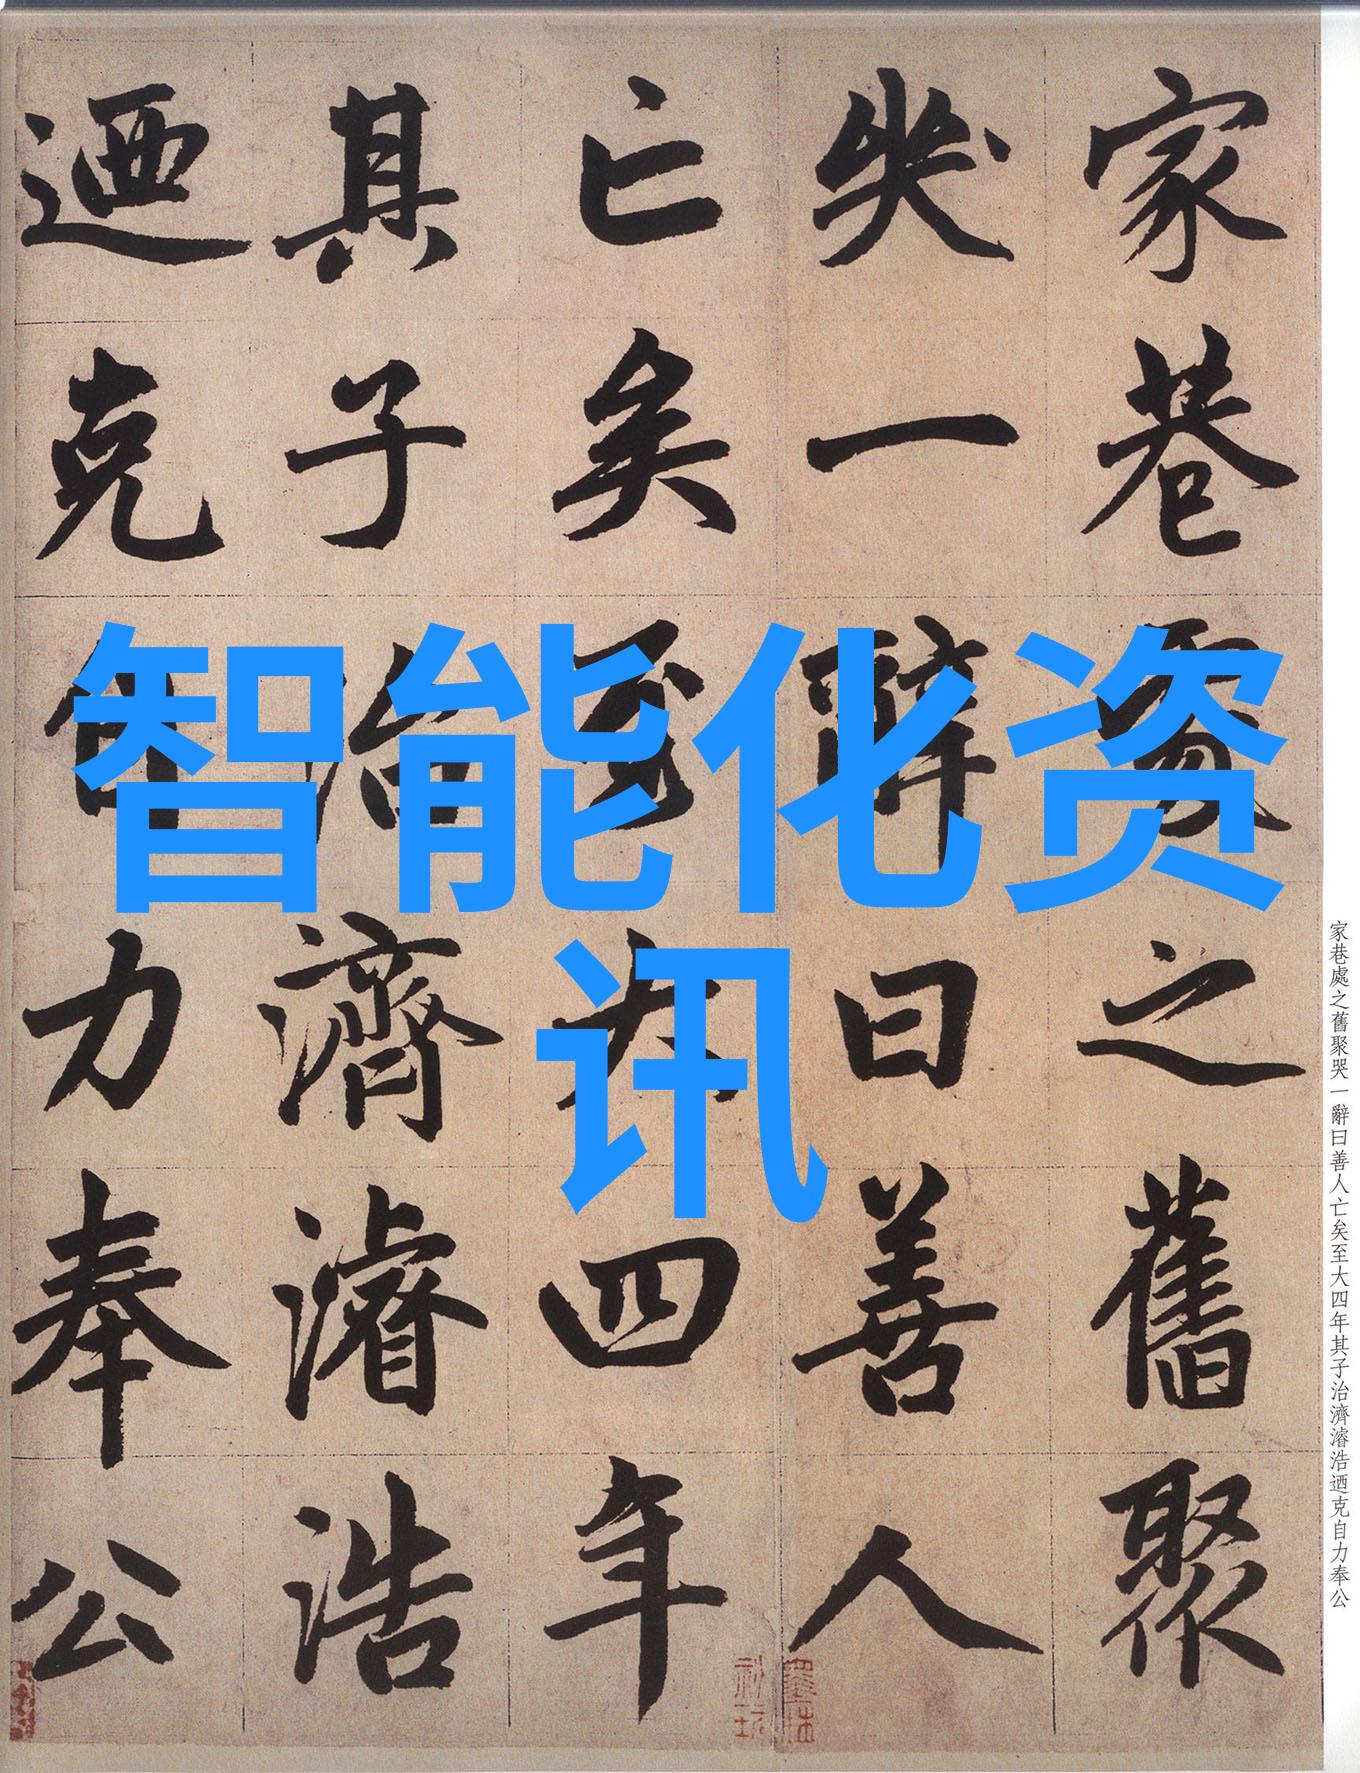 家巷處之舊聚
哭一辭曰善人
亡矣至大四年
其子治濟濬浩
迺克自力奉公
智能化资
讯
家巷處之舊聚哭一辭曰善人亡矣至大四年其子治濟濬浩迺克自力奉公